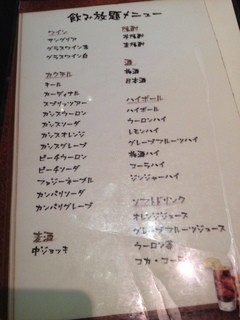 飲み放題メニュー
ワイン
サングリア
グラスワイン赤
グラスワイン白
カクテル
キール
カーディナル
スプリッツァー
カシスウーロン
カシスソーダ
カシスオレンジ
カシスグレープ
ピーチウーロン
ピーチソーダ
ファジーネーブル
カンパリソーダ
カンパリグレープ
麦酒
中ジョッキ
酒
梅酒
日本酒
ハイボール
ハイボール
ウーロンハイ
レモンハイ
グレープフルーツハイ
梅酒ハイ
コーラハイ
ジンジャーハイ
ソフトドリンク
オレンジジュース
グレープフルーツジュース
ウーロン茶
コカ・コーラ